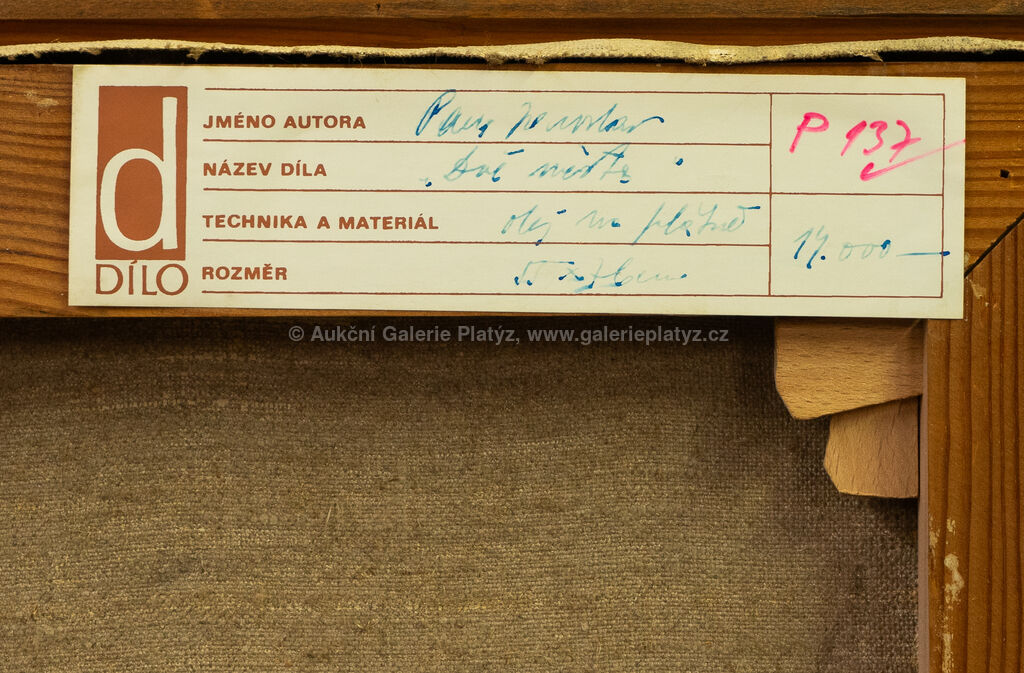 d
DÍLO
JMÉNO AUTORA Jaroslav
NÁZEV DÍLA „Dvě města"
TECHNIKA A MATERIÁL olej na plátně
ROZMĚR 55 x 76 cm
P 137
17.000—
© Aukční Galerie Platýz, www.galerieplatyz.cz